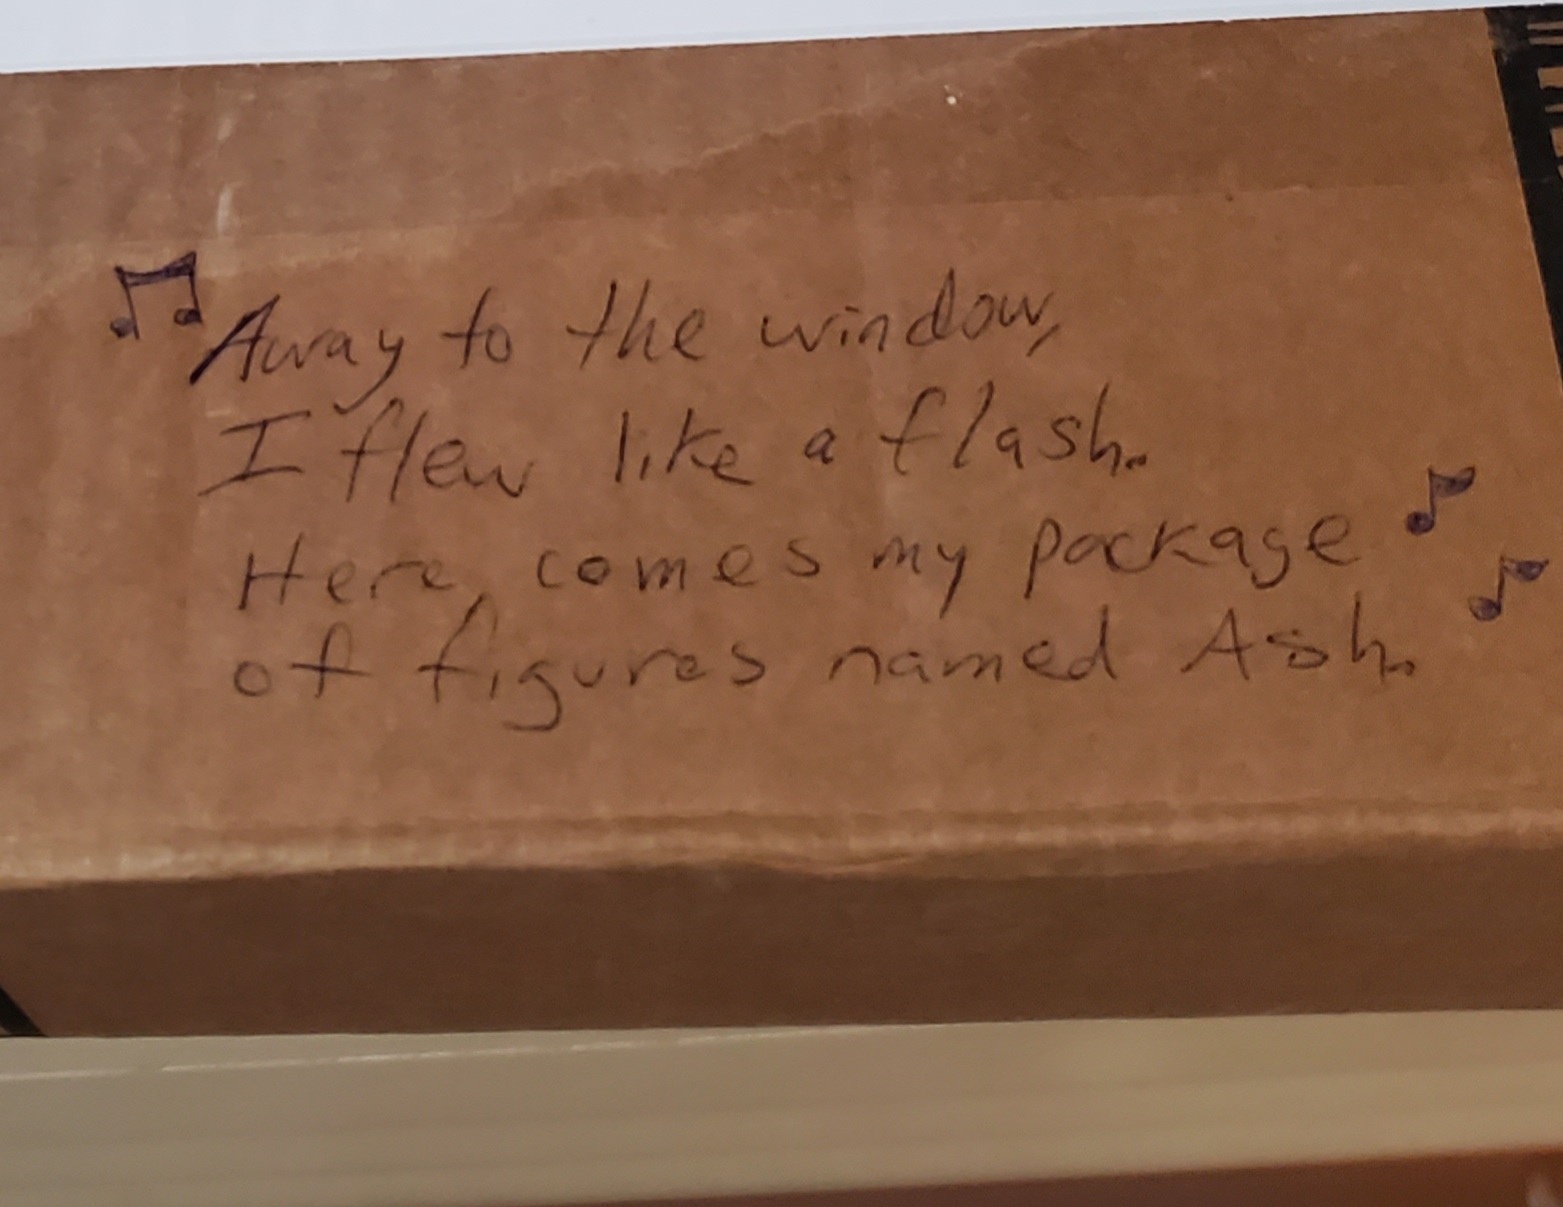 Away to the window,
I flew like a flash.
Here, comes my package
of figures named Ash.